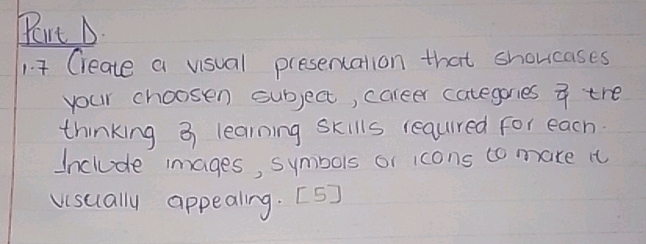 Part D.
1.7 Create a visual presentation that showcases
your choosen subject, career categories & the
thinking & learning skills required for each.
Include images, symbols or icons to make it
visually appealing. [5]